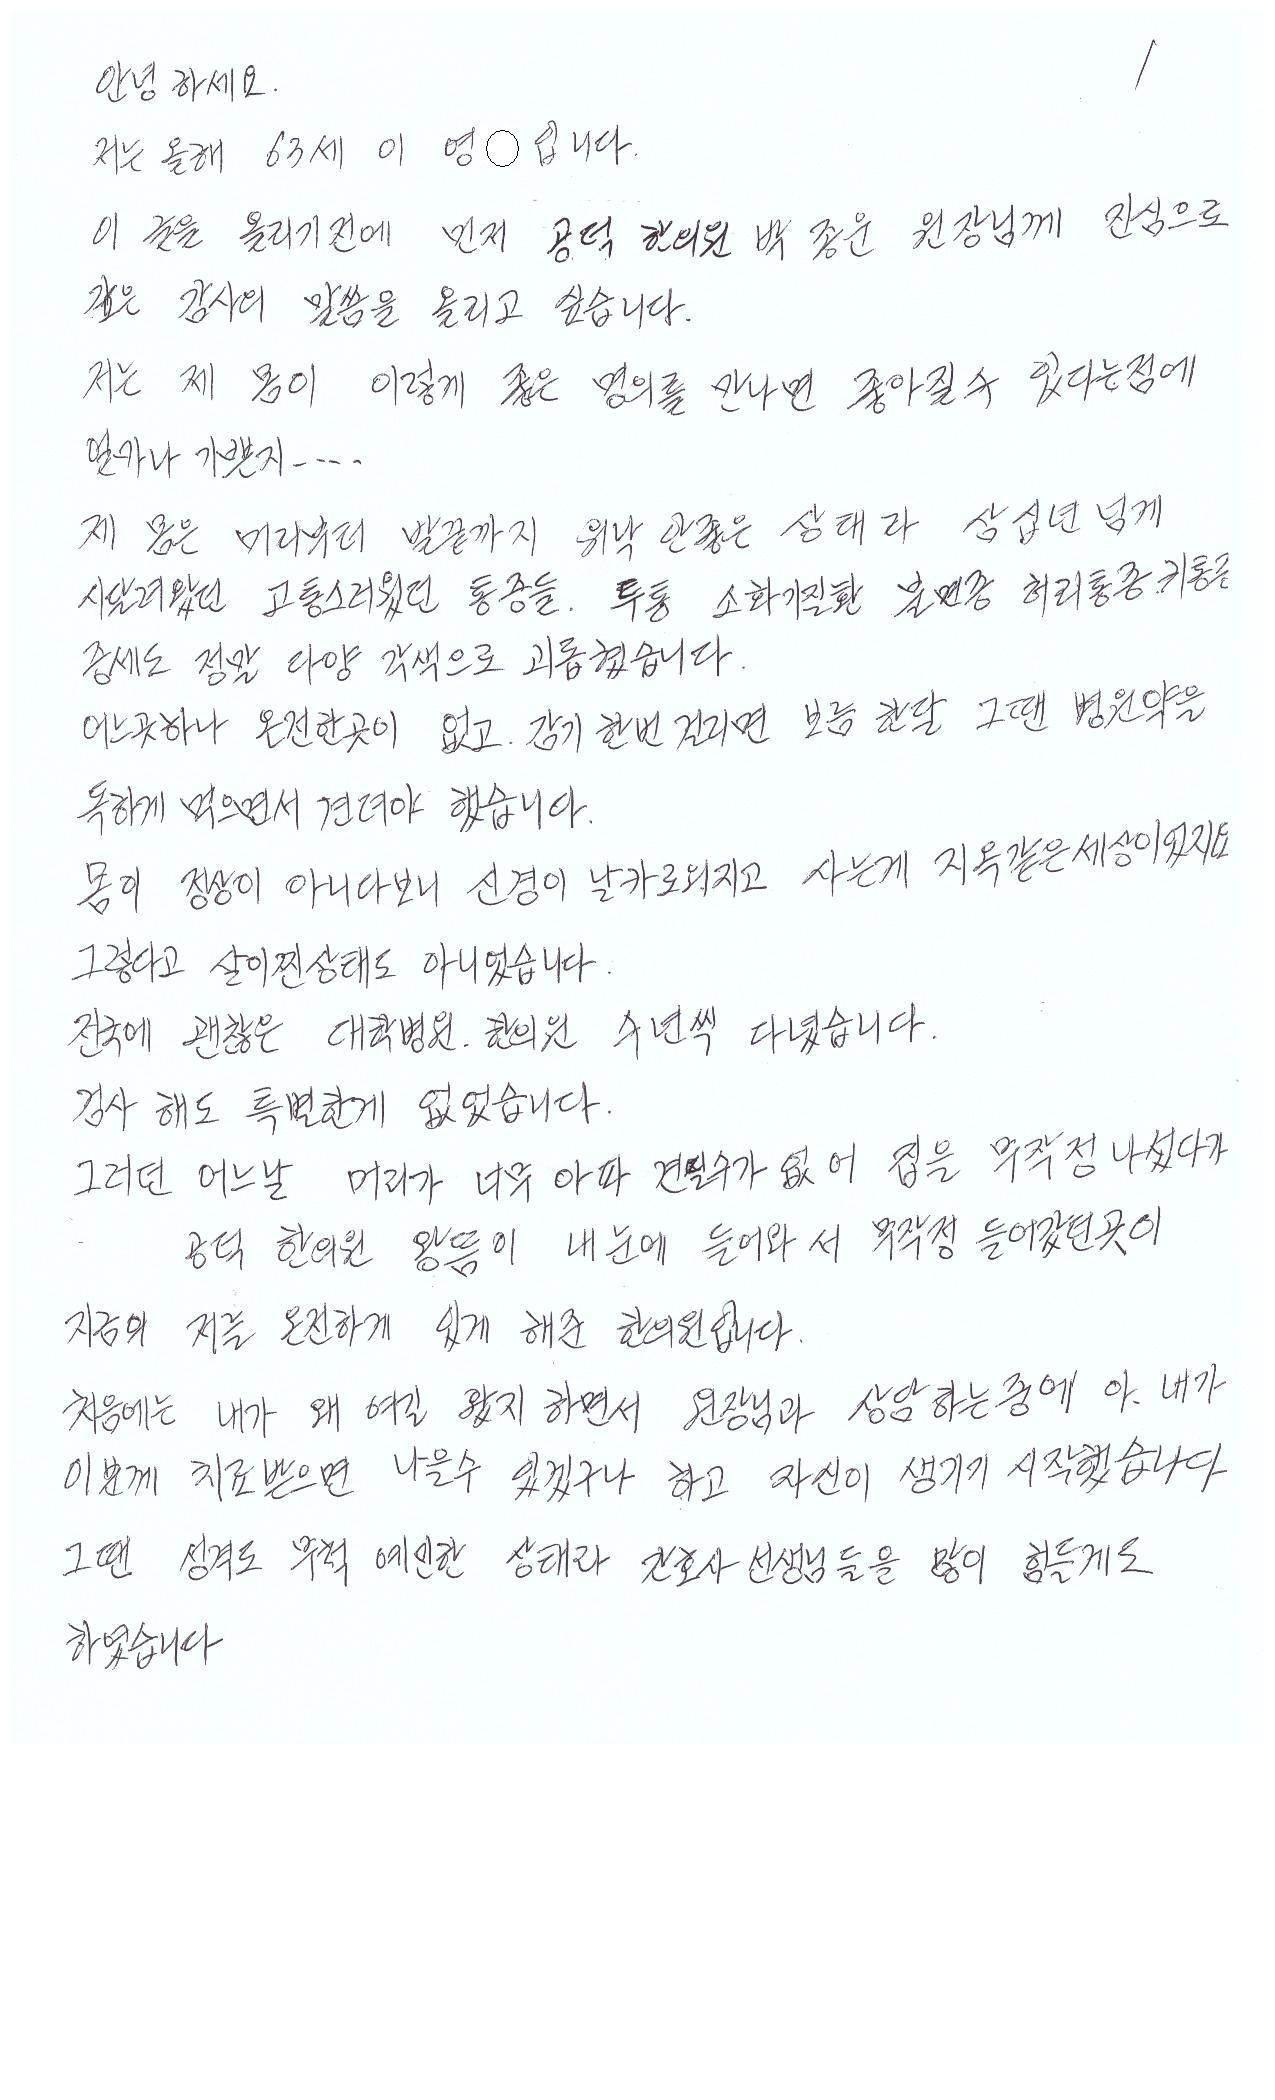 1
안녕 하세요.
저는 올해 63세 이 영○입니다.
이 글을 올리기전에 먼저 공덕 한의원 박 종운 원장님께 진심으로
깊은 감사의 말씀을 올리고 싶습니다.
저는 제 몸이 이렇게 좋은 명의를 만나면 좋아질수 있다는점에
얼마나 기쁜지----
제 몸은 머리부터 발끝까지 워낙 안좋은 상태라 삼십년 넘게
시달려왔던 고통스러웠던 통증들. 두통 소화기질환 불면증 허리통증
증세도 정말 다양 각색으로 괴롭혔습니다.
어느곳하나 온전한곳이 없고. 감기 한번 걸리면 보름 한달 그땐 병원약을
독하게 먹으면서 견뎌야 했습니다.
몸이 정상이 아니다보니 신경이 날카로워지고 사는게 지옥같은세상이었지요
그렇다고 살이찐상태도 아니었습니다.
전국에 괜찮은 대학병원. 한의원 수년씩 다녔습니다.
검사 해도 특별한게 없었습니다.
그러던 어느날 머리가 너무 아파 견딜수가 없어 집을 무작정 나섰다가
공덕 한의원 왕뜸이 내눈에 들어와서 무작정 들어갔던곳이
지금의 저를 온전하게 있게 해준 한의원입니다.
처음에는 내가 왜 여길 왔지 하면서 원장님과 상담하는중에 아. 내가
이분께 치료받으면 나을수 있겠구나 하고 자신이 생기기 시작했습니다
그땐 성격도 무척 예민한 상태라 간호사선생님들을 많이 힘들게도
하였습니다